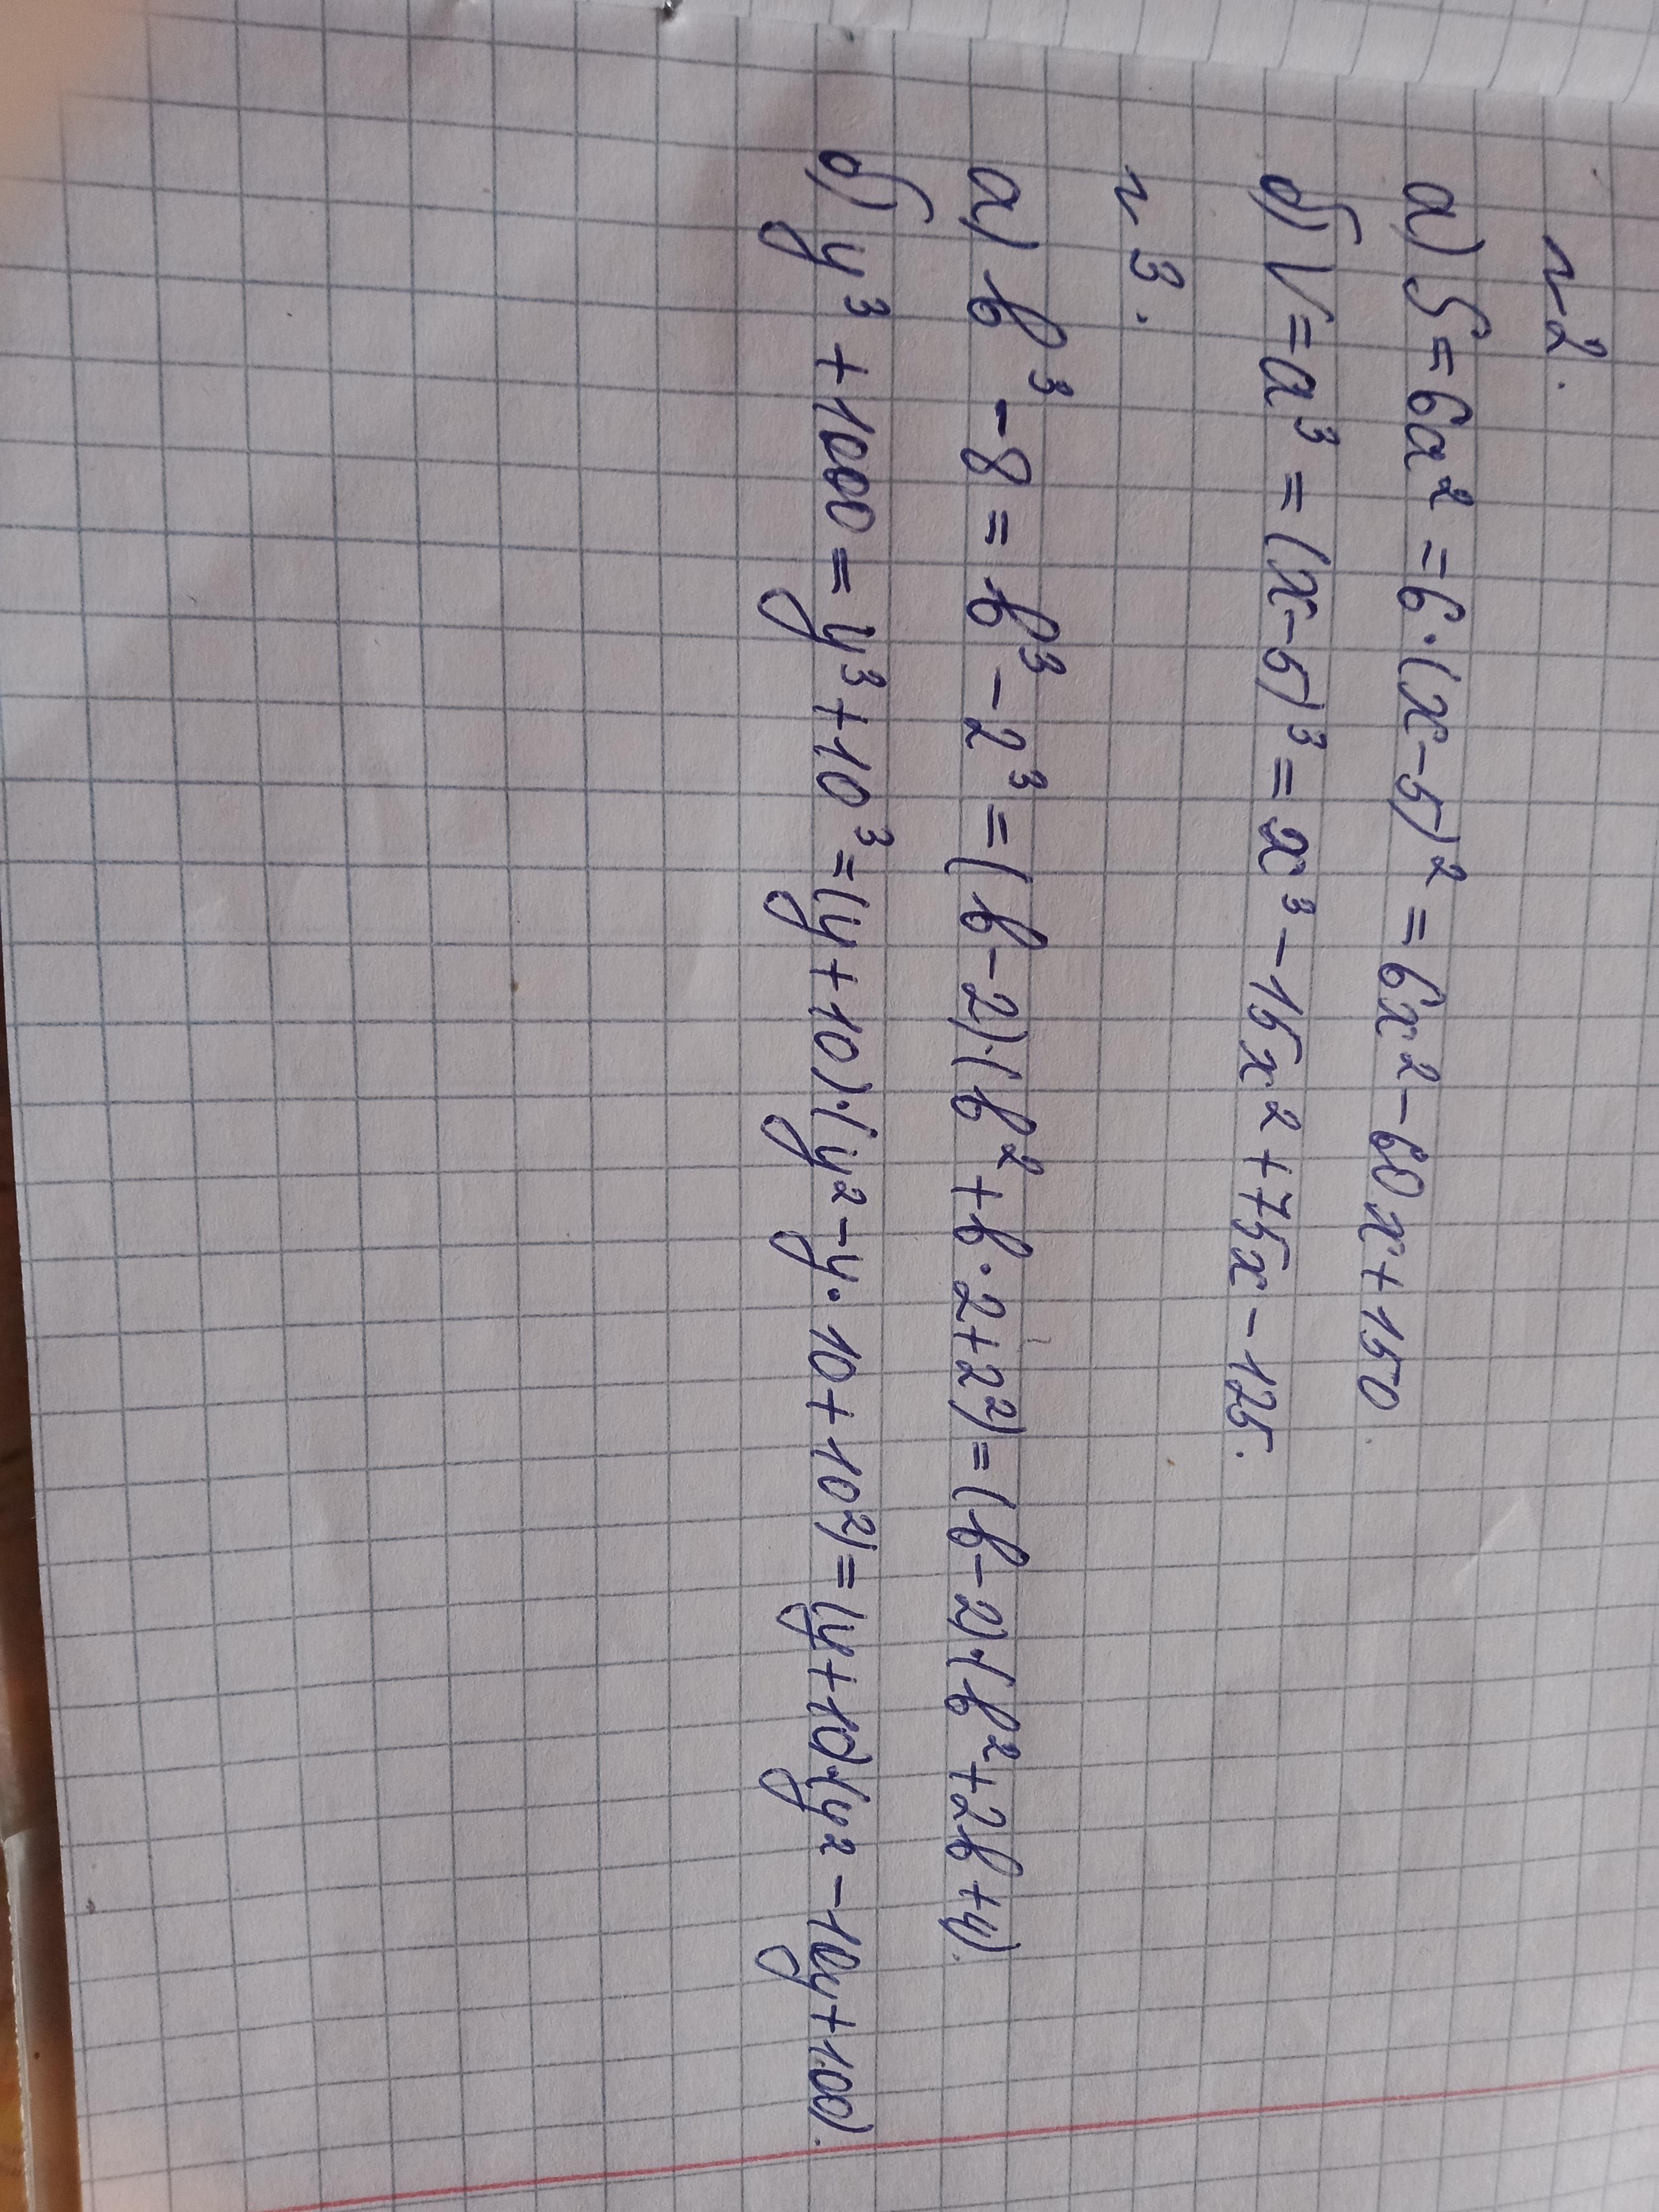 n 2.
а) S = 6a² = 6·(x-5)² = 6x² - 60x + 150.
б) V = a³ = (x-5)³ = x³ - 15x² + 75x - 125.
n 3.
а) b³ - 8 = b³ - 2³ = (b-2)·(b² + b·2 + 2²) = (b-2)·(b² + 2b + 4).
б) y³ + 1000 = y³ + 10³ = (y+10)·(y² - y·10 + 10²) = (y+10)·(y² - 10y + 100).